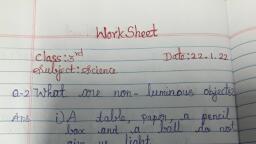 WorkSheet
Class:3rd Date:22.1.22
Subject:Science
Q-2 What are non-luminous objects
Ans i) A table, paper, a pencil
box and a ball do not
give us light